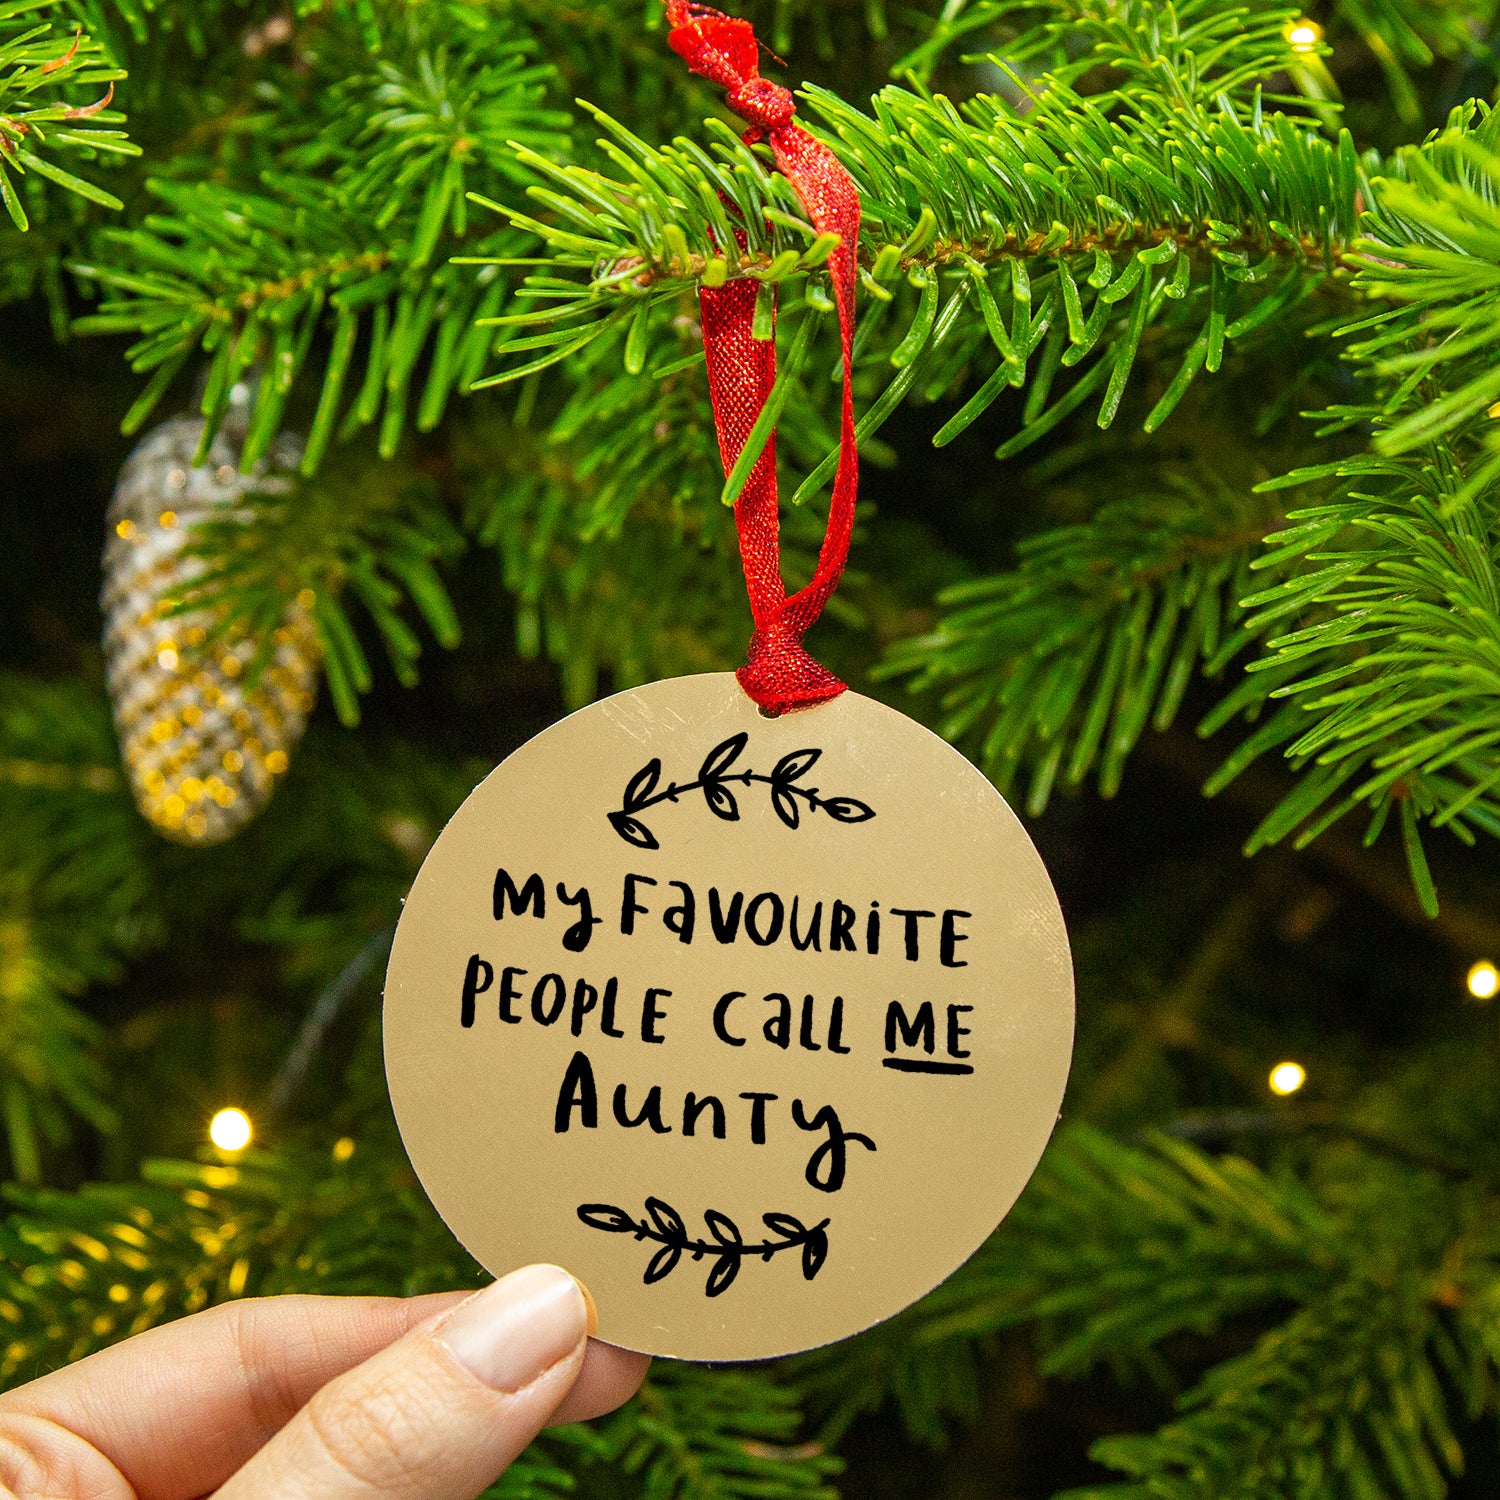 My FavOURiTE
PEOPLE Call ME
AunTy